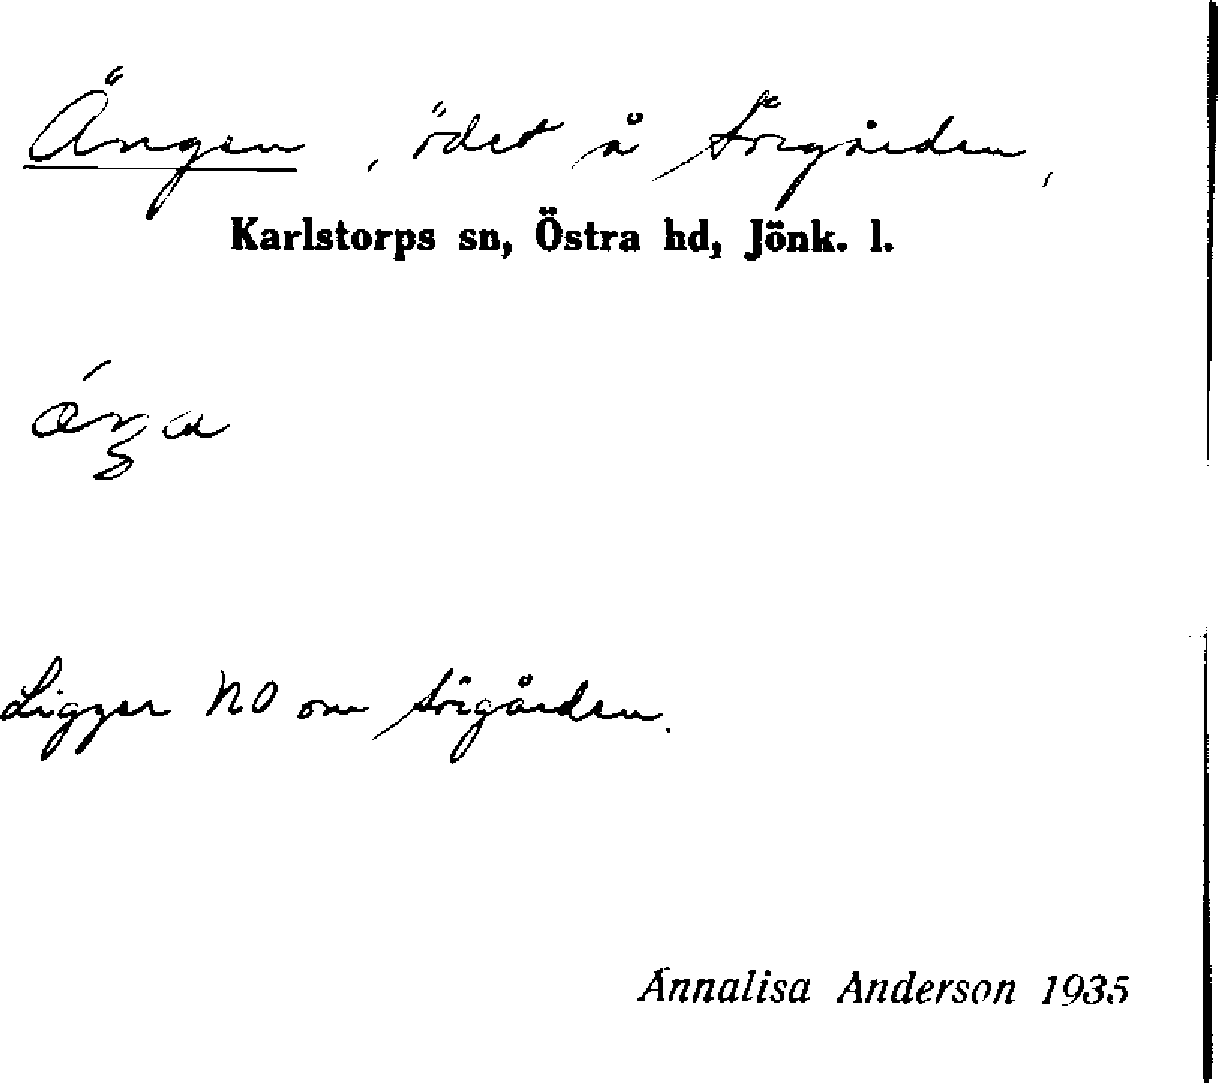 Ängen, ödet å Sörgården,
Karlstorps sn, Östra hd, Jönk. l.
Ligger NO om Sörgården.
Annalisa Anderson 1935